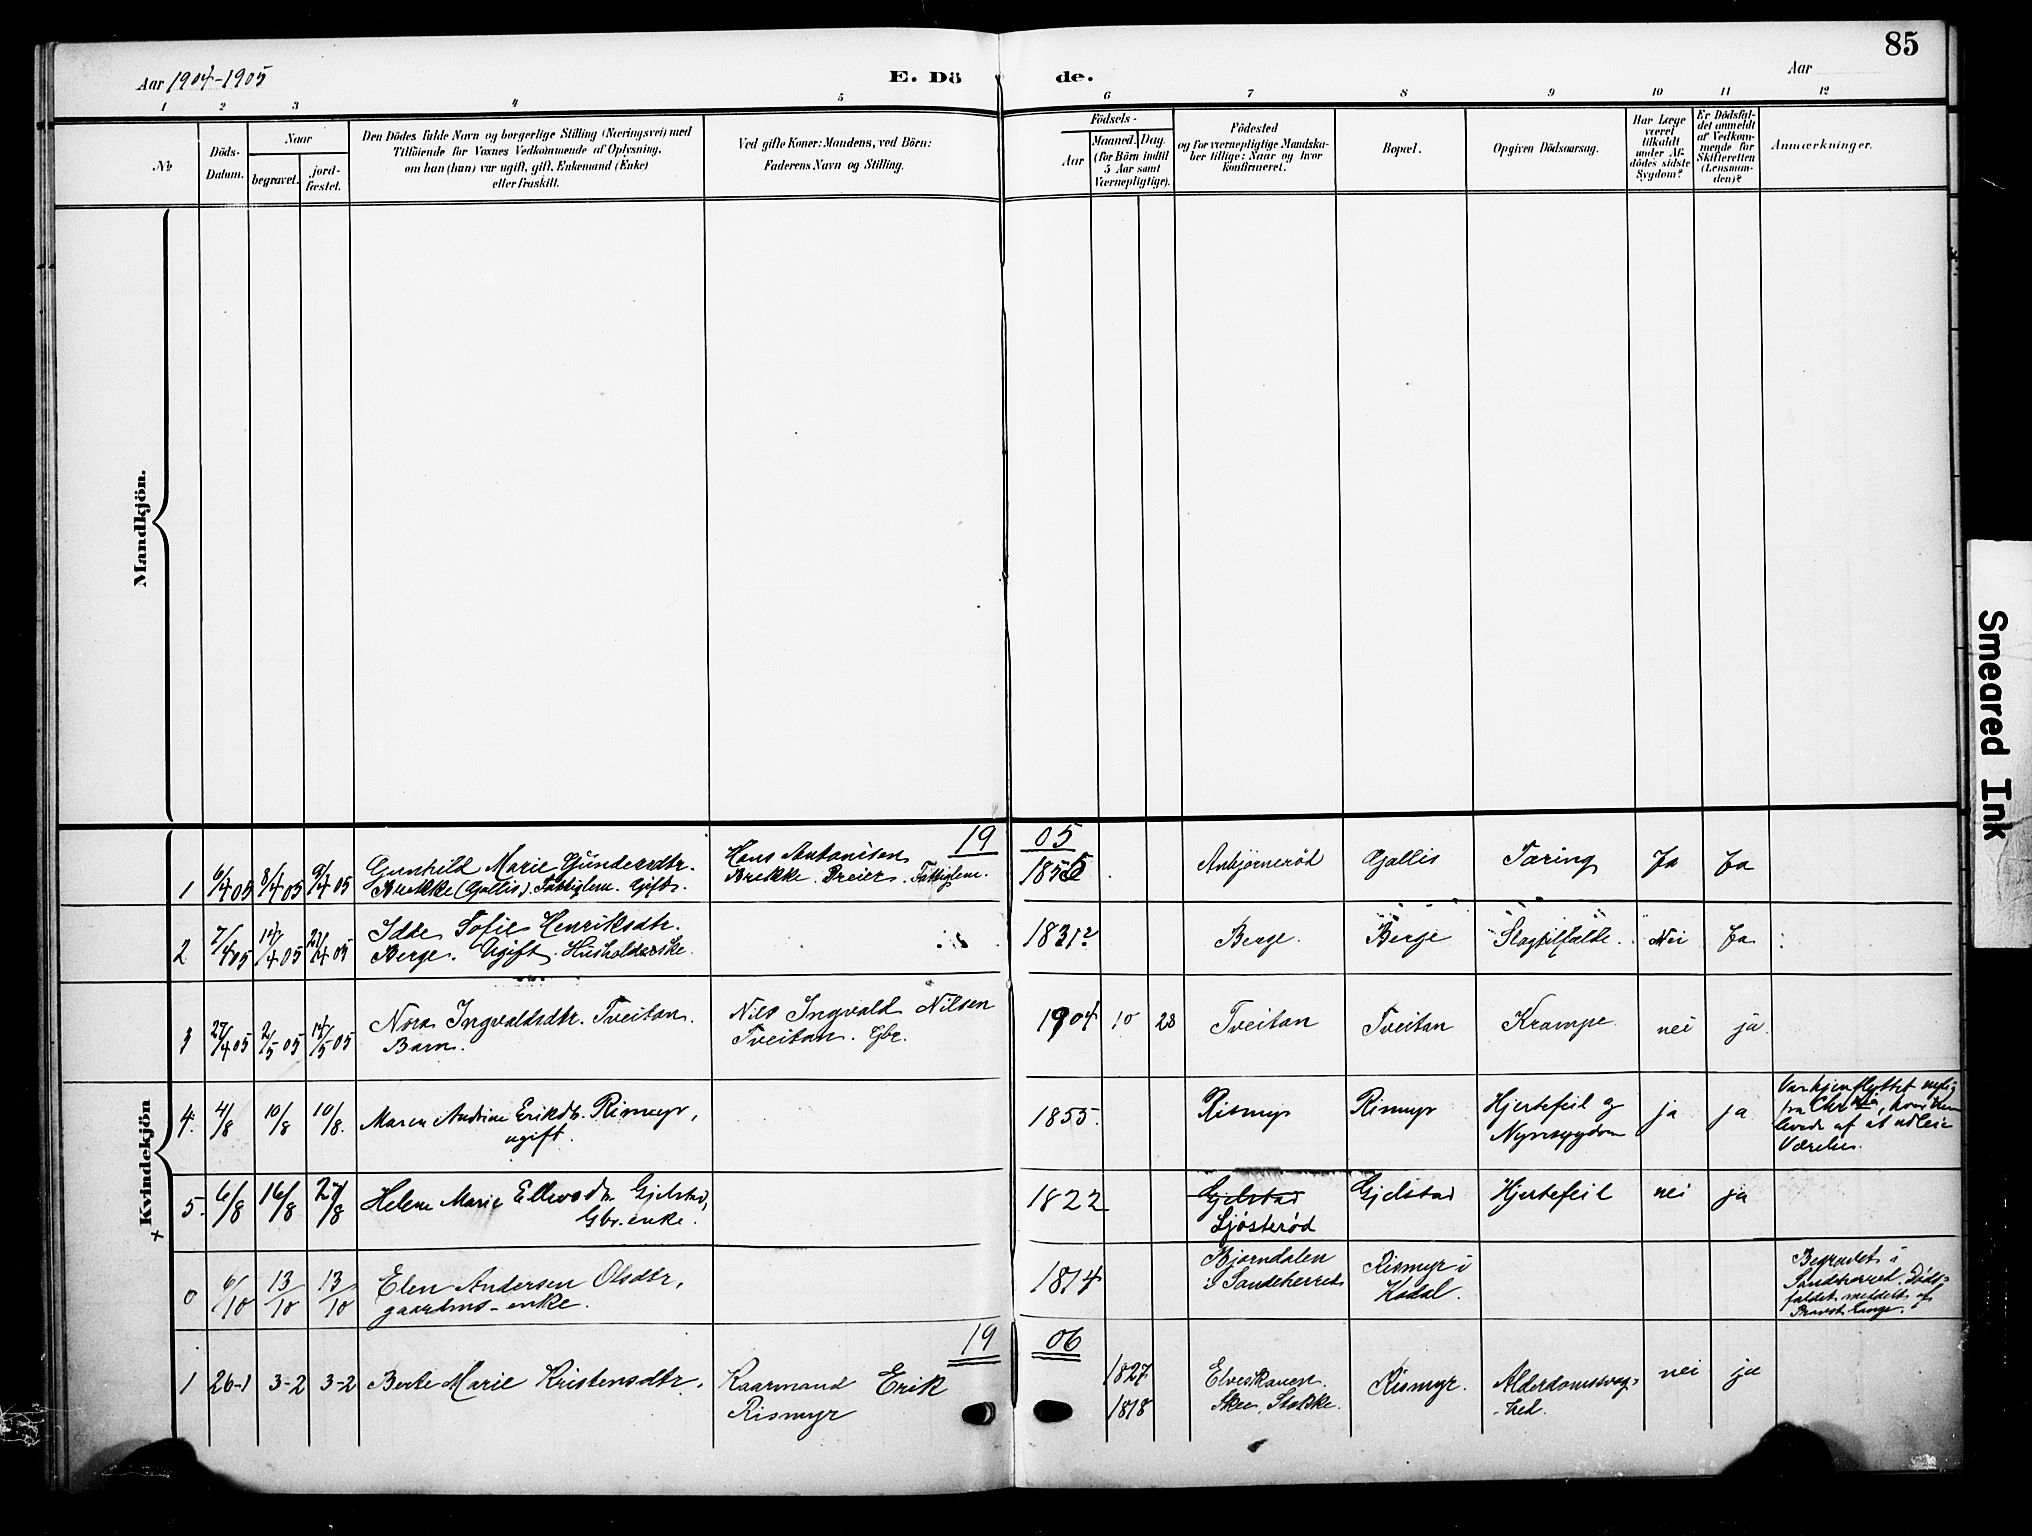 85
Aar 1904-1905
E. Dö
de.
Aar
1 2 3 4 5 6 7 8 9 10 11 12
No
Döds-
Datum.
Naar
begravet.
jord-
fæstet.
Den Dödes fulde Navn og borgerlige Stilling (Næringsvei) med
Tilföiende for Voxnes Vedkommende af Oplysning,
om han (hun) var ugift, gift, Enkemand (Enke)
eller fraskilt.
Ved gifte Koner: Mandens, ved Börn:
Faderens Navn og Stilling.
Födsels-
Aar
Maaned. Dag.
(for Börn indtil
5 Aar samt
Værnepligtige).
Födested
og for værnepligtige Mandska-
ber tillige: Naar og hvor
konfirmeret.
Bopæl.
Opgiven Dödsaarsag.
Har Læge
været
tilkaldt
under Af-
dödes sidste
Sygdom?
Er Dödsfal-
det anmeldt
af Vedkom-
mende for
Skifteretten
(Lensman-
den)?
Anmærkninger.
Mandkjön.
Kvindekjön
19 05
1 6/4 05 8/4 05 9/4 05 Gunhild Marie Gundersdtr.
Brekke (Gallis). Fattiglem. Gift.
Hans Antonisen
Brekke. Dreier. Fattiglem.
1855 Anbjørnerød Gallis Tæring Ja Ja
2 7/4 05 14/4 05 4 05 Idde Sofie Henriksdtr.
Berge. Ugift. Husholderske.
1831? Berge. Berge Slagtilfælde. Nei Ja
3 27/4 05 2/5 05 14/5 05 Nora Ingvaldsdtr. Tveitan.
Barn.
Nils Ingvald Nilsen
Tveitan. Gbr.
1904 10 28 Tveitan Tveitan Krampe nei ja
4. 4/8 10/8 10/8. Maren Andrine Eriksdtr. Rismyr,
ugift.
1855. Rismyr Rismyr Hjertefeil og
Nyresygdom ja ja
Var hjemflyttet nylig
fra Chr.nia, hvor hun
levede af at udleie
Værelser.
5. 6/8 16/8 27/8 Helene Marie Gjelstad,
Gbr.enke.
1822 Gjelstad
Sjøsterød
Gjelstad Hjertefeil nei ja
0 6/10 13/10 13/10 Elen Andersen Olsdtr,
gaardms-enke.
1814 Bjørndalen
i Sandeherred
Rismyr i
Kodal.
Begravet i
Sandeherred. Døds-
faldet meddelt af
Provst Lange.
19 06
1 26-1 3-2 3-2 Berte Marie Kristensdtr.
Kaarmand Erik
Rismyr
1827
1818
Skee, Stokke.
Rismyr. Alderdomssvag-
hed.
nei ja
Smeared Ink